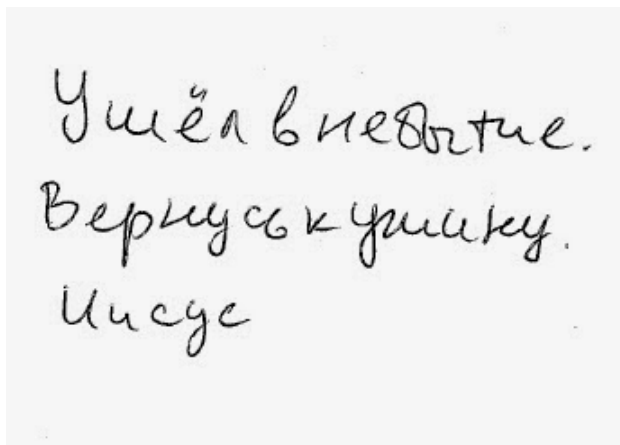 Ушёл в небытие.
Вернусь к ужину.
Иисус